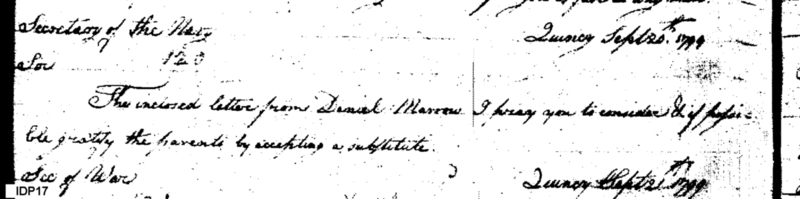 Secretary of the Navy Quincy Sept 20th 1799
Sir
The inclosed letter from Daniel Marrow I pray you to consider & if possi-
ble gratify the parents by accepting a substitute.
Sec of War Quincy Sept 21st 1799
IDP17